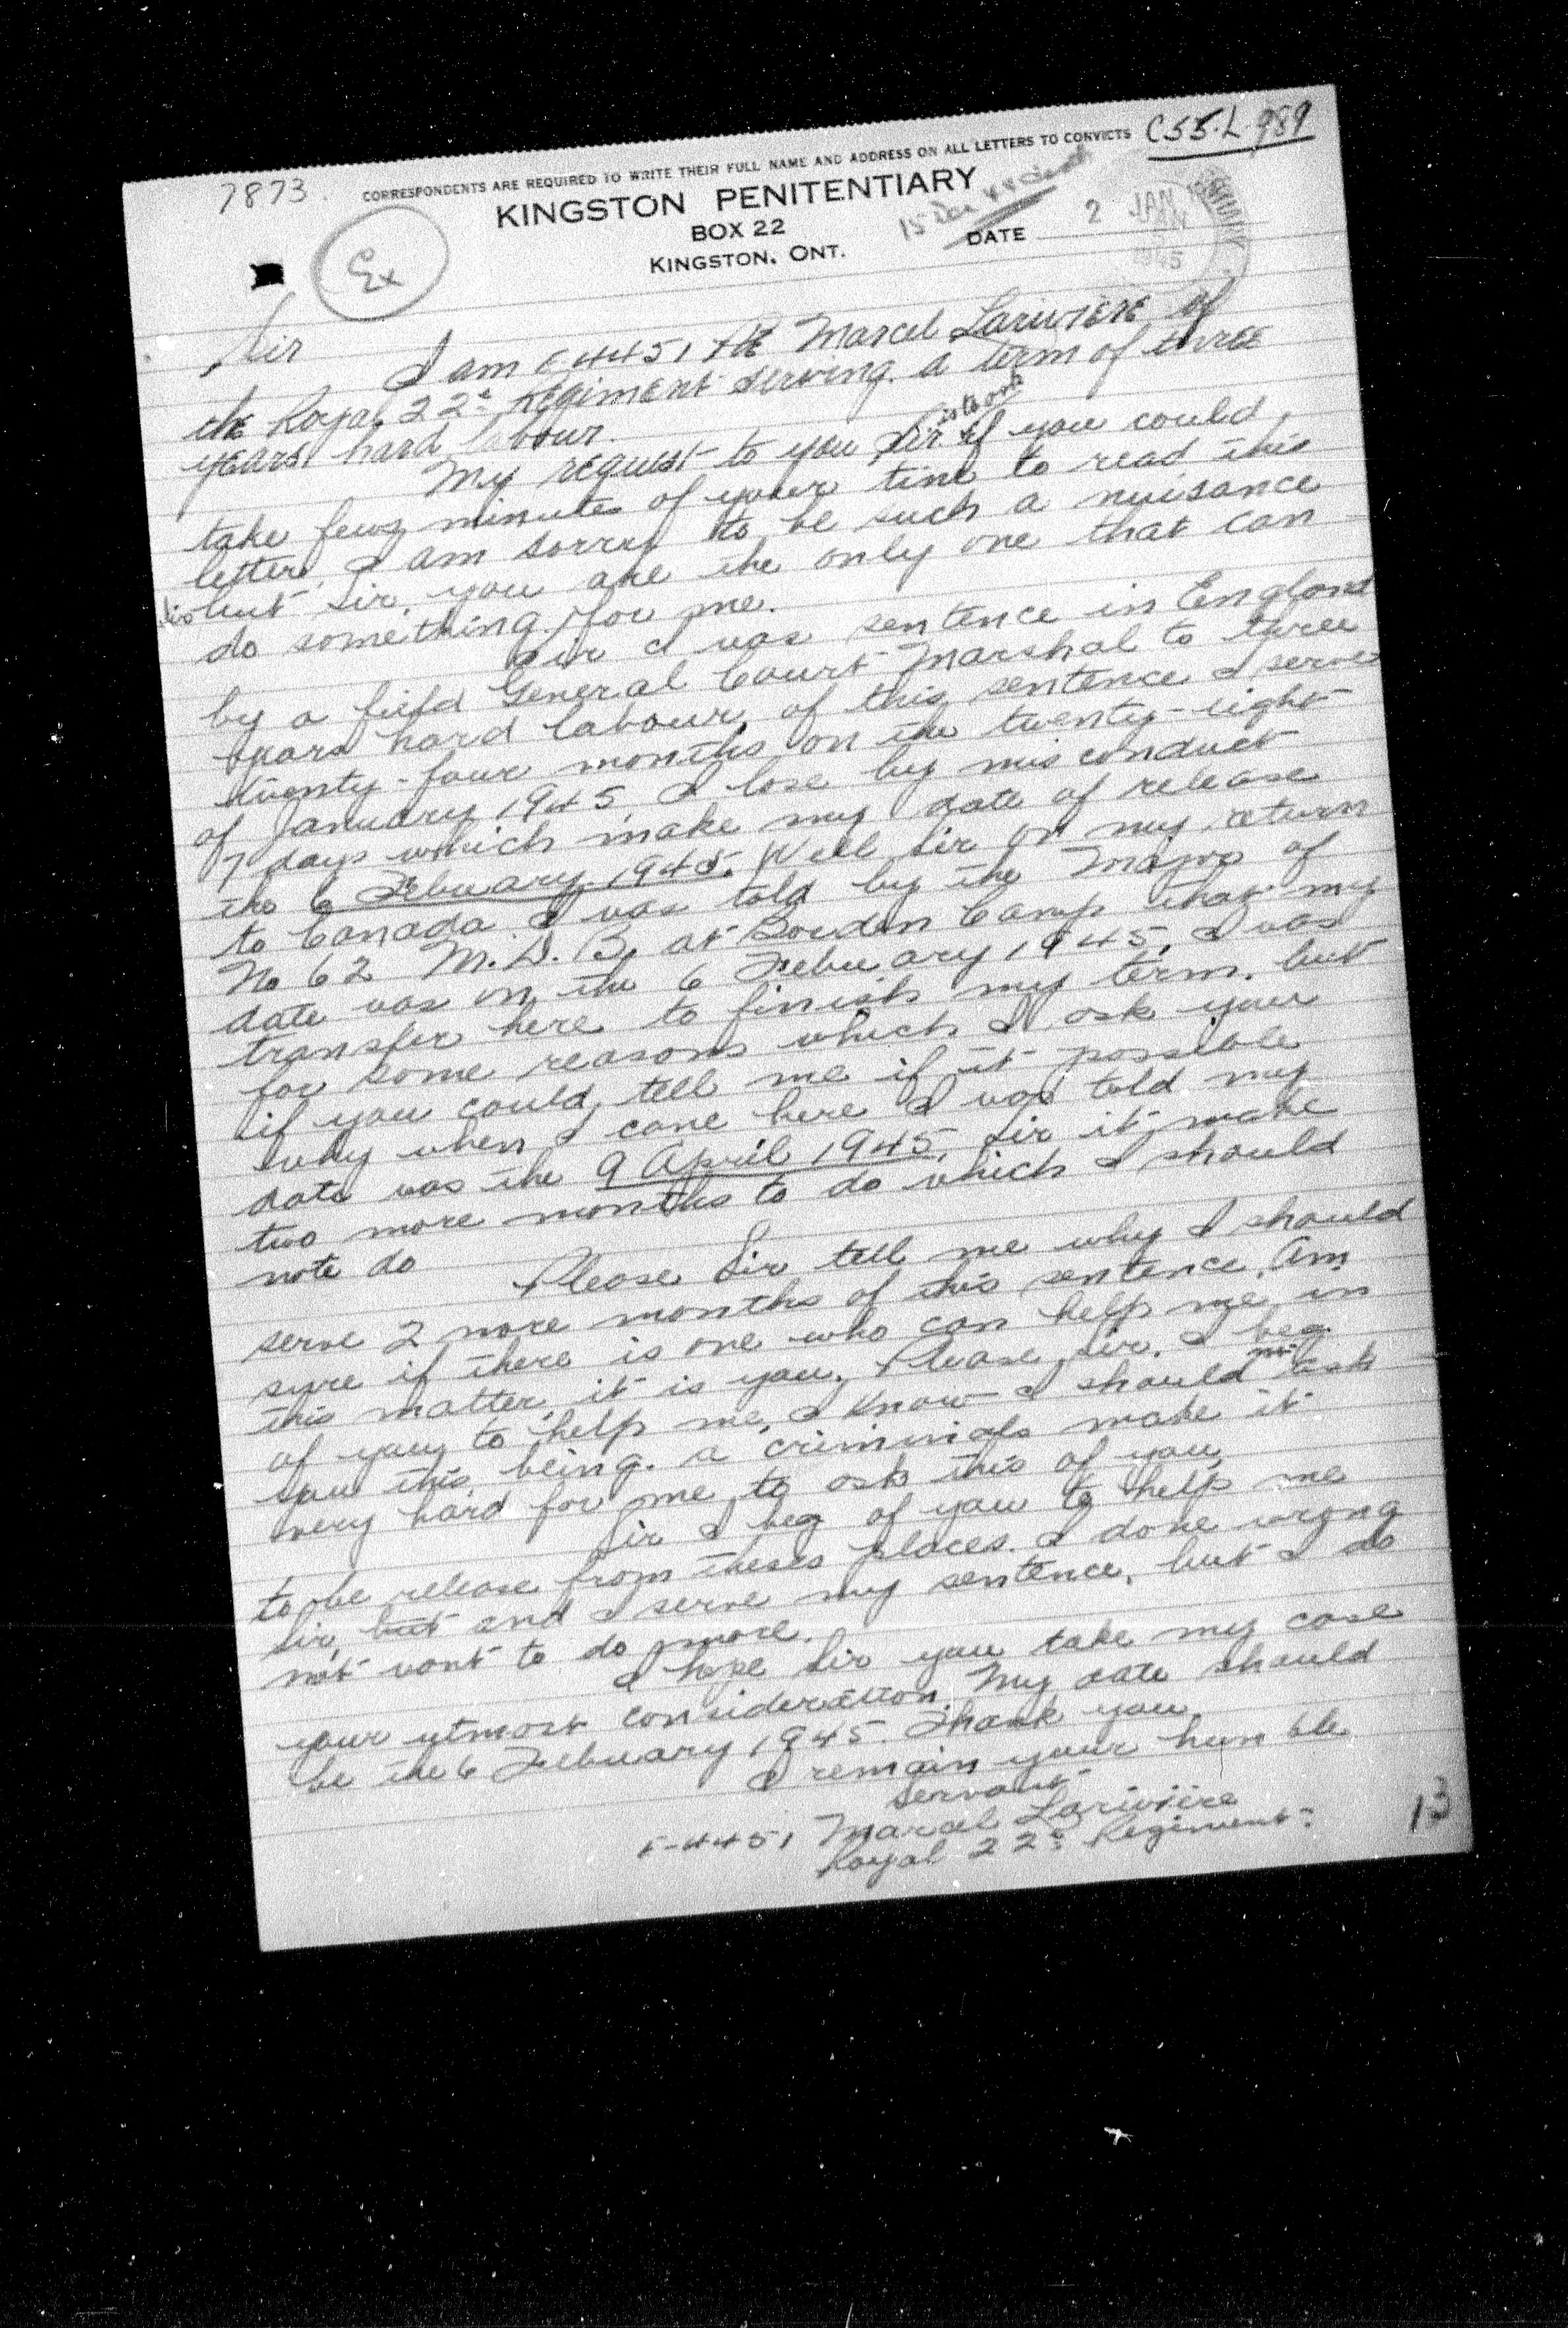 C55-L-989
7873.
CORRESPONDENTS ARE REQUIRED TO WRITE THEIR FULL NAME AND ADDRESS ON ALL LETTERS TO CONVICTS
KINGSTON PENITENTIARY
BOX 22
KINGSTON, ONT.
DATE 2 JAN 1945
Ex
Sir
I am E-4451 Pte Marcel Lariviere of
the Royal 22e Regiment serving. a term of three
years hard labour.
is to ask
My request to you Sir if you could
take fews minutes of your time to read this
letter, I am sorry to be such a nuisance
but Sir, you are the only one that can
do something for me.
Sir I was sentence in England
by a field General Court Marshal to three
years hard labour, of this sentence I serve
twenty-four months on the twenty-eight
of January 1945, I lose by misconduct
7 days which make my date of release
the 6 Febuary 1945. Well Sir on my return
to Canada I was told by the Major of
No 62 M.D.B. at Borden Camp that my
date was on the 6 Febuary 1945, I was
transfer here to finish my term. but
for some reasons which I ask you
if you could, tell me if it possible
why when I came here I was told my
date was the 9 April 1945, Sir it make
two more months to do which I should
note do
Please Sir tell me why I should
serve 2 more months of this sentence. Am
sure if there is one who can help me in
this matter, it is you. Please, Sir. I beg
of you to help me, I know I should not ask
you this, being. a criminals make it
very hard for me to ask this of you,
Sir I beg of you to help me
to be release from theses places. I done wrong
Sir, but and I serve my sentence, but I do
not want to do more.
I hope Sir you take my case
your utmost consideration. My date should
be the 6 Febuary 1945. Thank you
I remain your humble
Servant
E-4451 Marcel Lariviere
Royal 22e Regiment.
13